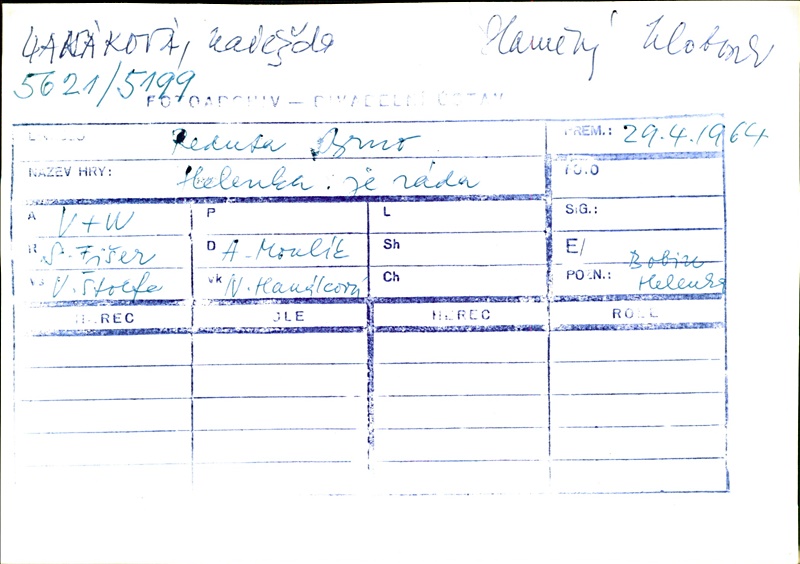 HANÁKOVÁ, Naděžda
Slaměný klobouk
5621/5199
FOTOARCHIV — DIVADELNÍ ÚSTAV
Reduta Brno
PREM.: 29.4.1964
NÁZEV HRY: Helenka je ráda
FOTO
A V+W
P
L
SIG.:
R S. Fišer
D A. Moulík
Sh
E/
Vs V. Štolfa
Vk N. Hanáková
Ch
POZN.: Bobin
Helenka
HEREC
ROLE
HEREC
ROLE